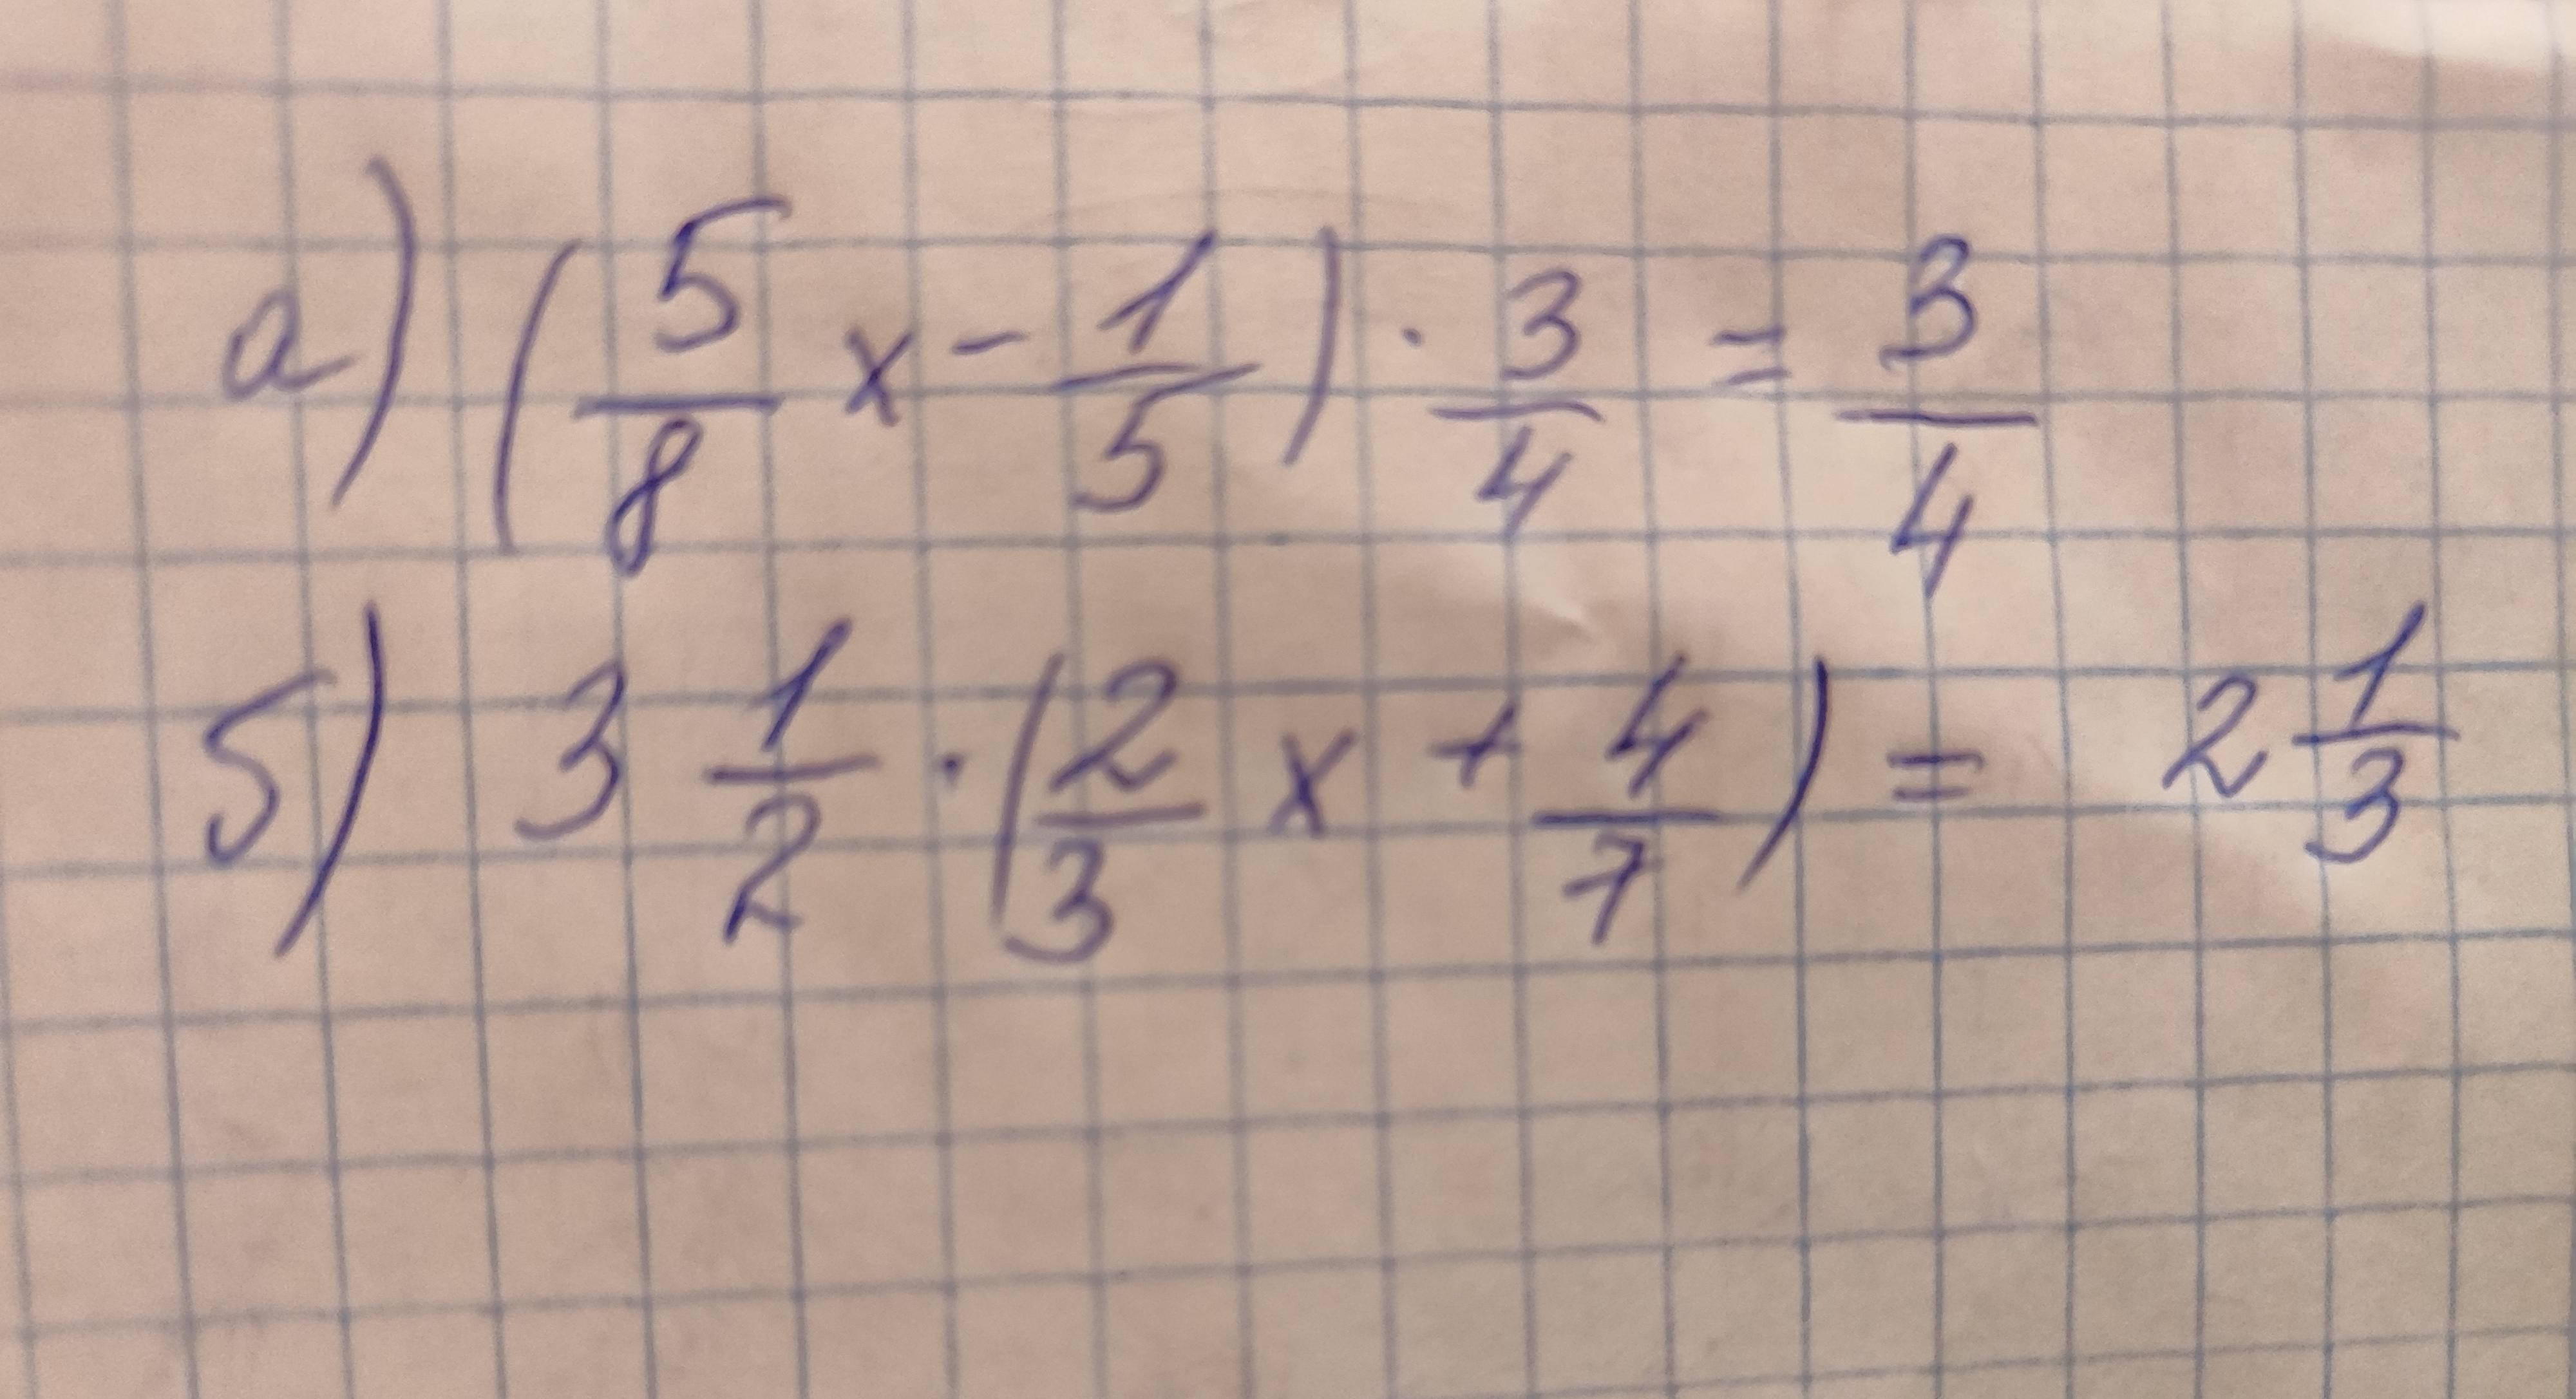 а) (5/8 x - 1/5) · 3/4 = 3/4
б) 3 1/2 · (2/3 x + 4/7) = 2 1/3